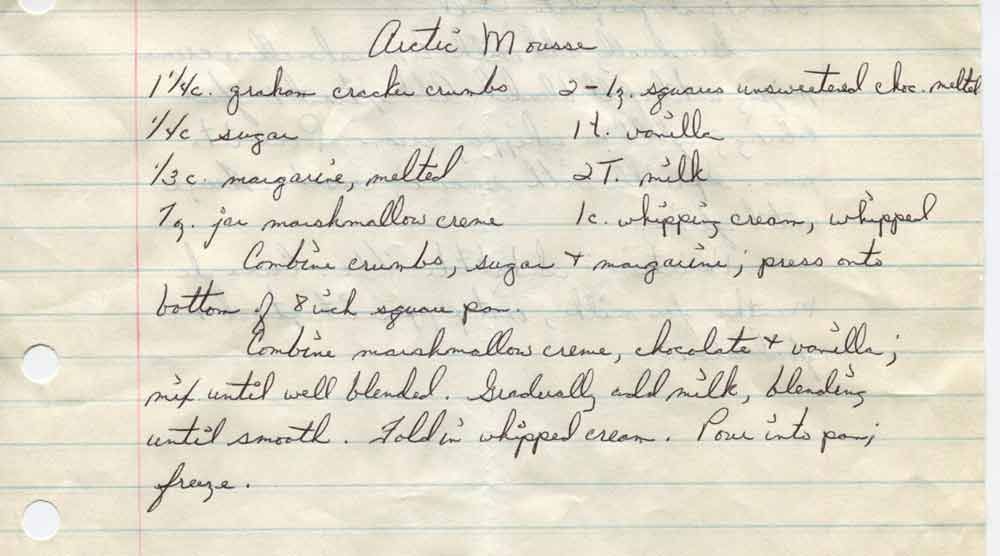 Arctic Mousse
1 1/4c. graham cracker crumbs 2-1 oz. squares unsweetened choc. melted
1/4c sugar 1 t. vanilla
1/3 c. margarine, melted 2T. milk
7 oz. jar marshmallow creme 1c. whipping cream, whipped
Combine crumbs, sugar + margarine; press onto
bottom of 8 inch square pan.
Combine marshmallow creme, chocolate + vanilla;
mix until well blended. Gradually add milk, blending
until smooth. Fold in whipped cream. Pour into pan;
freeze.